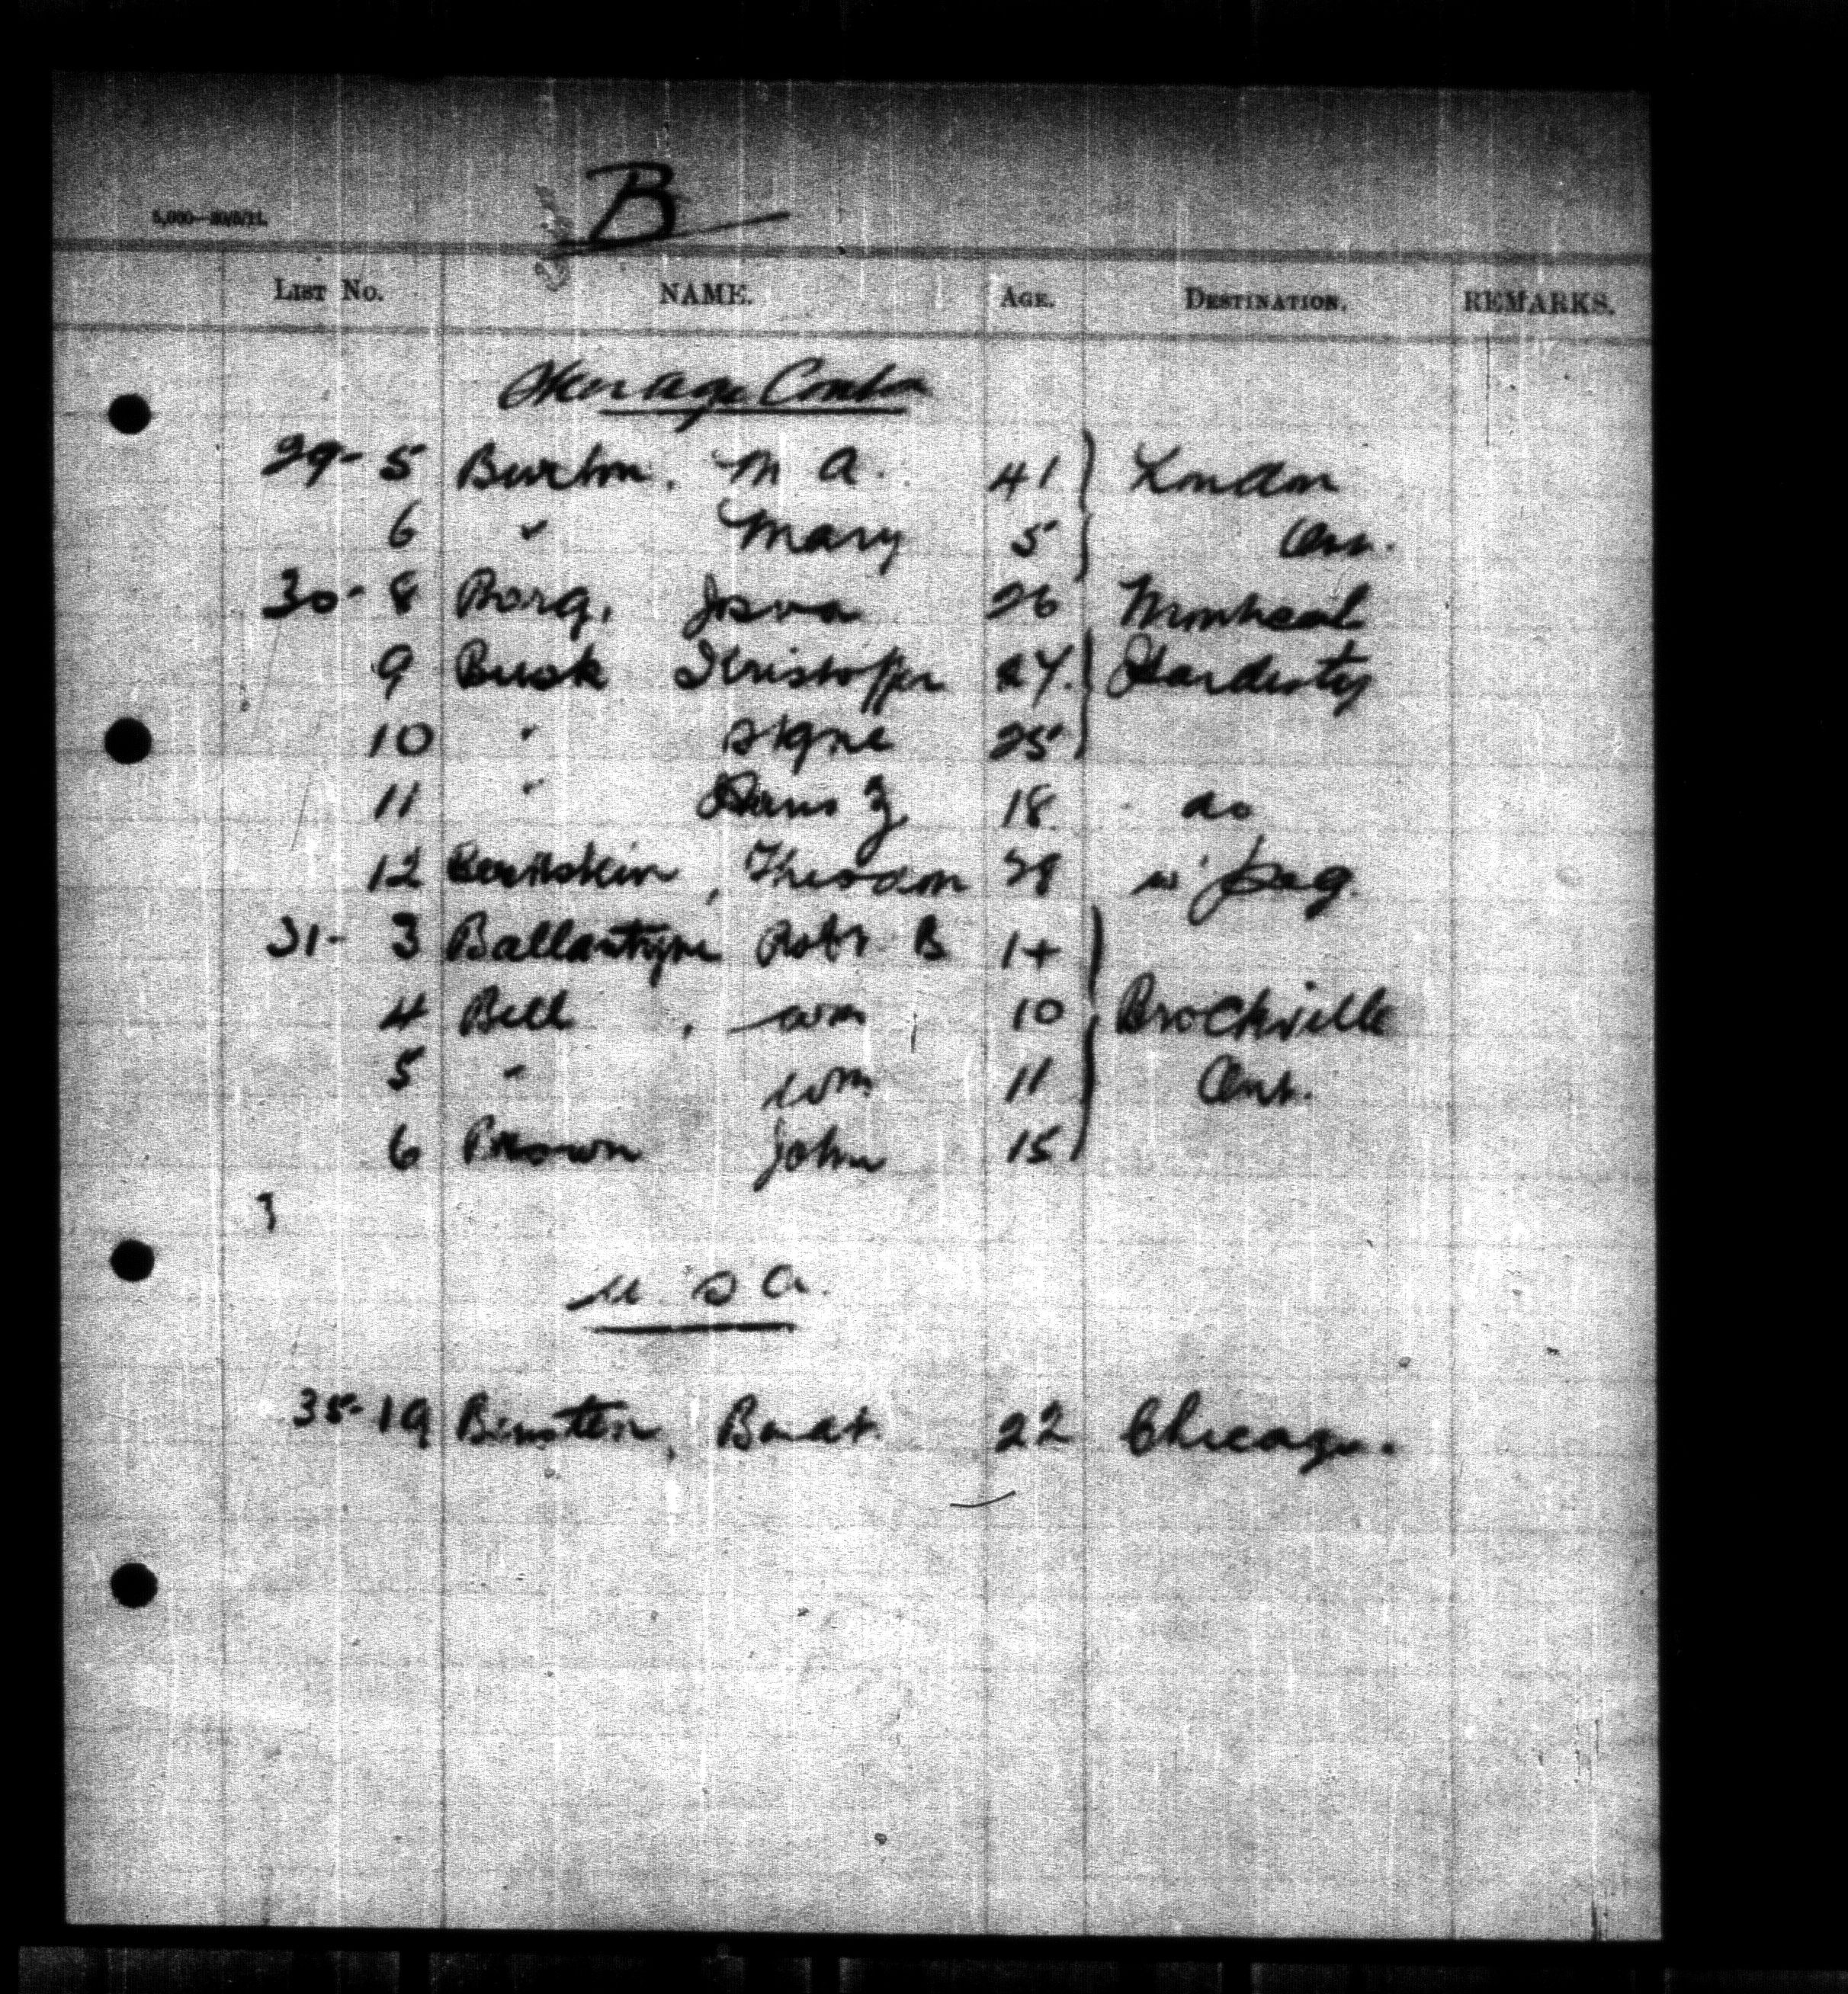 B
5,000—30/5/11.
LIST No. NAME. AGE. DESTINATION. REMARKS.
Steerage Contn
29-5 Burton, M A. 41 London
6 " Mary 5 Ont.
30-8 Borg, 26 Montreal
9 Busk Kristoffer 27. Hardisty
10 " Signe 25
11 " Hans 18 do
12 Bernstein, Theodor 28 W'peg.
31-3 Ballantyne Robt B 14
4 Bell, Wm 10 Brockville
5 " Wm 11 Ont.
6 Brown John 15
U S A.
35-19 22 Chicago.